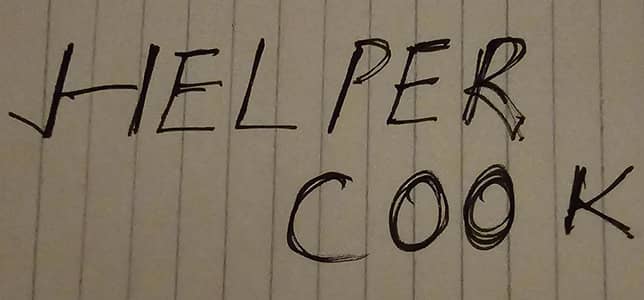 HELPER
COOK